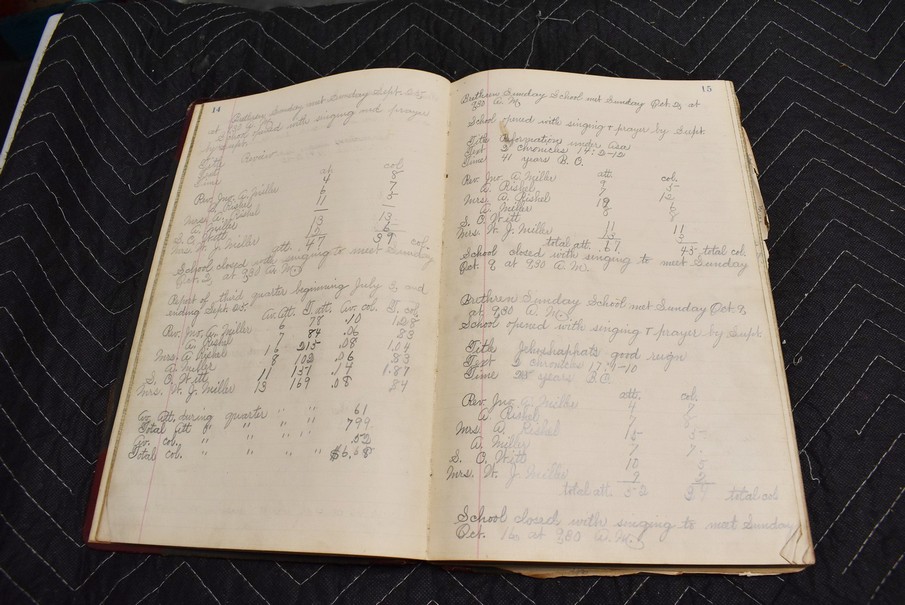 14
Brethren Sunday met Sunday Sept. 25,
at 9:30 A. M.
School opened with singing and prayer
by Supt.
Title Review
Text
Time
att. col.
Rev. Jno. A. Miller 4 8
A. Rishel 6 7
Mrs. A. Rishel 11 5
A. Miller — —
S. O. Witt 13 13
Mrs. W. J. Miller 13 6
att. 47 39 col.
School closed with singing to meet Sunday
Oct. 2, at 9:30 A. M.
Report of third quarter beginning July 3, and
ending Sept. 25.
Av. Att. T. att. Av. col. T. col.
Rev. Jno. A. Miller 6 78 .10 1.28
A. Rishel 7 84 .06 .83
Mrs. A. Rishel 16 215 .08 1.04
A. Miller 8 102 .06 .83
S. O. Witt 11 137 .14 1.87
Mrs. W. J. Miller 13 169 .08 .84
Av. Att. during quarter " " 61
Total att " " " " 799
Av. col. " " " " .52
Total col. " " " " $6.68
15
Brethren Sunday School met Sunday Oct. 2, at
9:30 A. M.
School opened with singing & prayer by Supt.
Title Reformation under Asa
Text 2 Chronicles 14:2-12
Time 941 years B. C.
att. col.
Rev. Jno. A. Miller 9 5
A. Rishel 9 12
Mrs. A. Rishel 19 6
A. Miller 8 8
S. O. Witt 11 11
Mrs. W. J. Miller 11 3
total att. 67 45 total col.
School closed with singing to meet Sunday
Oct. 9 at 9:30 A. M.
Brethren Sunday School met Sunday Oct. 9,
at 9:30 A. M.
School opened with singing & prayer by Supt.
Title Jehoshaphat's good reign
Text 2 Chronicles 17:1-10
Time years B. C.
att. col.
Rev. Jno. A. Miller
A. Rishel
Mrs. A. Rishel 15 5
A. Miller 7 7
S. O. Witt 10 5
Mrs. W. J. Miller 9 2
total att. 52 37 total col.
School closed with singing to meet Sunday
Oct. 16 at 9:30 A. M.